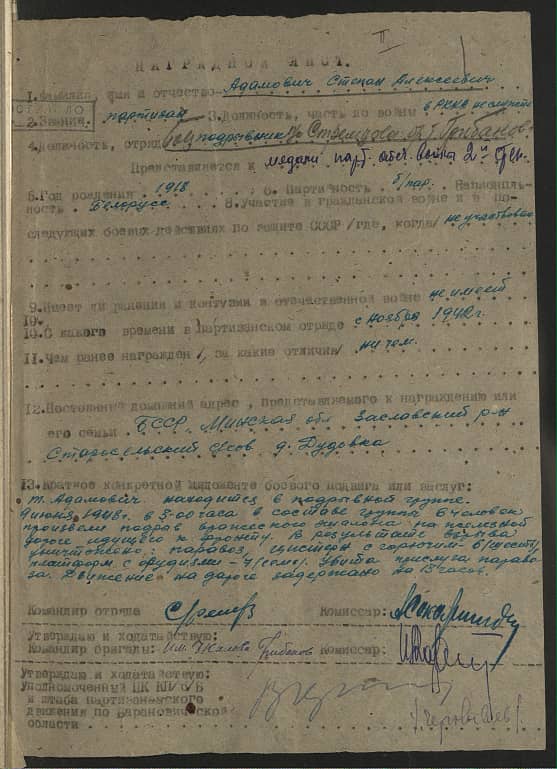 II
НАГРАДНОЙ ЛИСТ.
1. Фамилия, имя и отчество Адамович Степан Алексеевич
2. Звание партизан 3. Должность, часть до войны в РККА не служил
4. Должность, отряд боец подрывник
Представляется к медали парт. отеч. войны 2й степ.
5. Год рождения 1918 6. Партийность б/пар. Националь-
ность Белорусс. 8. Участие в гражданской войне и в по-
следующих боевых действиях по защите СССР /где, когда/ не участвовал
9. Имеет ли ранения и контузии в отечественной войне не имеет
10.
10. С какого времени в партизанском отряде с ноября 1942г.
11. Чем ранее награжден /, за какие отличия/ ни чем.
12. Постоянный домашний адрес, представляемого к награждению или
его семьи БССР Минская обл Заславский р-н
Старосельский с/сов д. Дудовка
13. Краткое конкретной изложение боевого подвига или заслуг:
т. Адамович находится в подрывной группе.
9 июня 1943г. в 3-00 часа в составе группы 6 человек
произвели подрыв вражеского эшелона на железной
дороге идущего к фронту. В результате взрыва
уничтожено: паровоз, цистерн с горючим - 6 (шесть)
платформ с орудиями - 7 (семь). Убита прислуга парово-
за. Движение на дороге задержано на 13 часов.
Командир отряда Комиссар:
Утверждаю и ходатайствую:
Командир бригады: Им. Чкалова Грибанов Комиссар:
Утверждаю и ходатайствую:
Уполномоченный ЦК КП/б/Б
и штаба партизанского
движения по Барановичской
области
/Чернышев/.